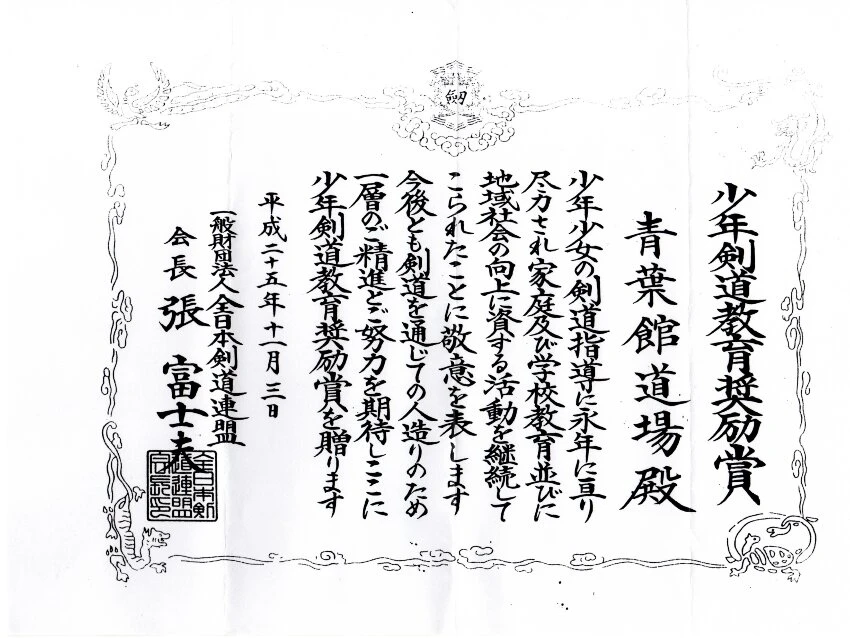 劔
少年剣道教育奨励賞
青葉館道場殿
少年少女の剣道指導に永年に亘り
尽力され家庭及び学校教育並びに
地域社会の向上に資する活動を継続して
こられたことに敬意を表します
今後とも剣道を通じての人造りのため
一層のご精進とご努力を期待しここに
少年剣道教育奨励賞を贈ります
平成二十五年十一月三日
一般財団法人全日本剣道連盟
会長 張富士夫
全日本剣
道連盟
会長印